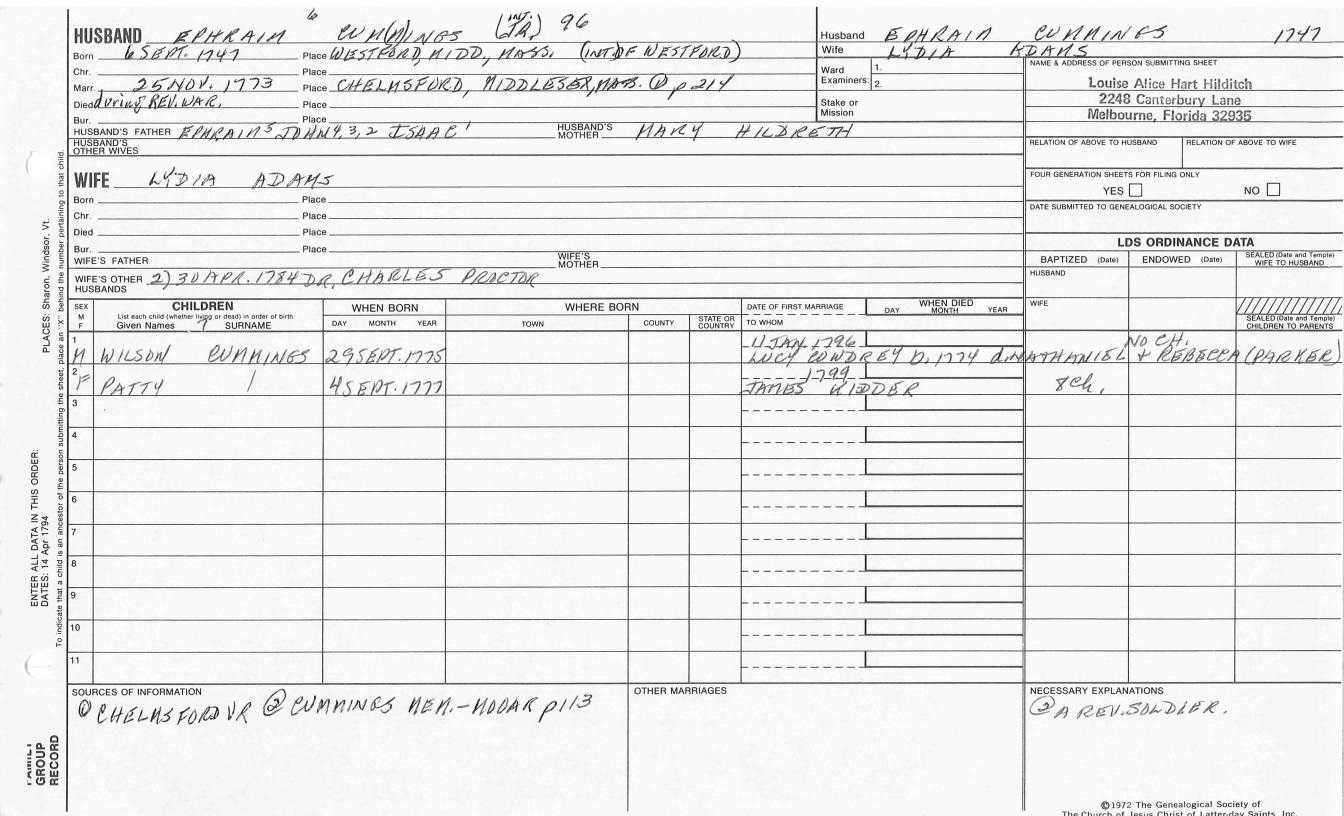 6
HUSBAND EPHRAIM CUM(M)INGS (INT. JR.) 96
Born 6 SEPT. 1747 Place WESTFORD, MIDD, MASS. (INT. OF WESTFORD)
Chr. Place
Marr. 25 NOV. 1773 Place CHELMSFORD, MIDDLESEX, MASS. ① p 214
Died during REV. WAR. Place
Bur. Place
HUSBAND'S FATHER EPHRAIM⁵ JOHN⁴,³,² ISAAC¹ HUSBAND'S MOTHER MARY HILDRETH
HUSBAND'S OTHER WIVES
WIFE LYDIA ADAMS
Born Place
Chr. Place
Died Place
Bur. Place
WIFE'S FATHER WIFE'S MOTHER
WIFE'S OTHER HUSBANDS 2) 30 APR. 1784 DR. CHARLES PROCTOR
Husband EPHRAIM CUMMINGS 1747
Wife LYDIA ADAMS
Ward Examiners: 1.
2.
Stake or Mission
NAME & ADDRESS OF PERSON SUBMITTING SHEET
Louise Alice Hart Hilditch
2248 Canterbury Lane
Melbourne, Florida 32935
RELATION OF ABOVE TO HUSBAND RELATION OF ABOVE TO WIFE
FOUR GENERATION SHEETS FOR FILING ONLY
YES NO
DATE SUBMITTED TO GENEALOGICAL SOCIETY
LDS ORDINANCE DATA
BAPTIZED (Date) ENDOWED (Date) SEALED (Date and Temple) WIFE TO HUSBAND
HUSBAND
WIFE
SEALED (Date and Temple) CHILDREN TO PARENTS
SEX M F
CHILDREN
List each child (whether living or dead) in order of birth
Given Names 7 SURNAME
WHEN BORN
DAY MONTH YEAR
WHERE BORN
TOWN COUNTY STATE OR COUNTRY
DATE OF FIRST MARRIAGE
TO WHOM
WHEN DIED
DAY MONTH YEAR
1 11 JAN. 1796 NO CH.
M WILSON CUMMINGS 29 SEPT. 1775 LUCY COWDREY b. 1774 d. NATHANIEL + REBECCA (PARKER)
2 1799
F PATTY / 4 SEPT. 1777 JAMES KIDDER 8 ch.
3
4
5
6
7
8
9
10
11
SOURCES OF INFORMATION
① CHELMSFORD VR ② CUMMINGS MEM. - MOOAR p 113
OTHER MARRIAGES
NECESSARY EXPLANATIONS
② A REV. SOLDIER.
©1972 The Genealogical Society of
The Church of Jesus Christ of Latter-day Saints, Inc.
PLACES: Sharon, Windsor, Vt.
ENTER ALL DATA IN THIS ORDER:
DATES: 14 Apr 1794
To indicate that a child is an ancestor of the person submitting the sheet, place an "X" behind the number pertaining to that child.
FAMILY
GROUP
RECORD